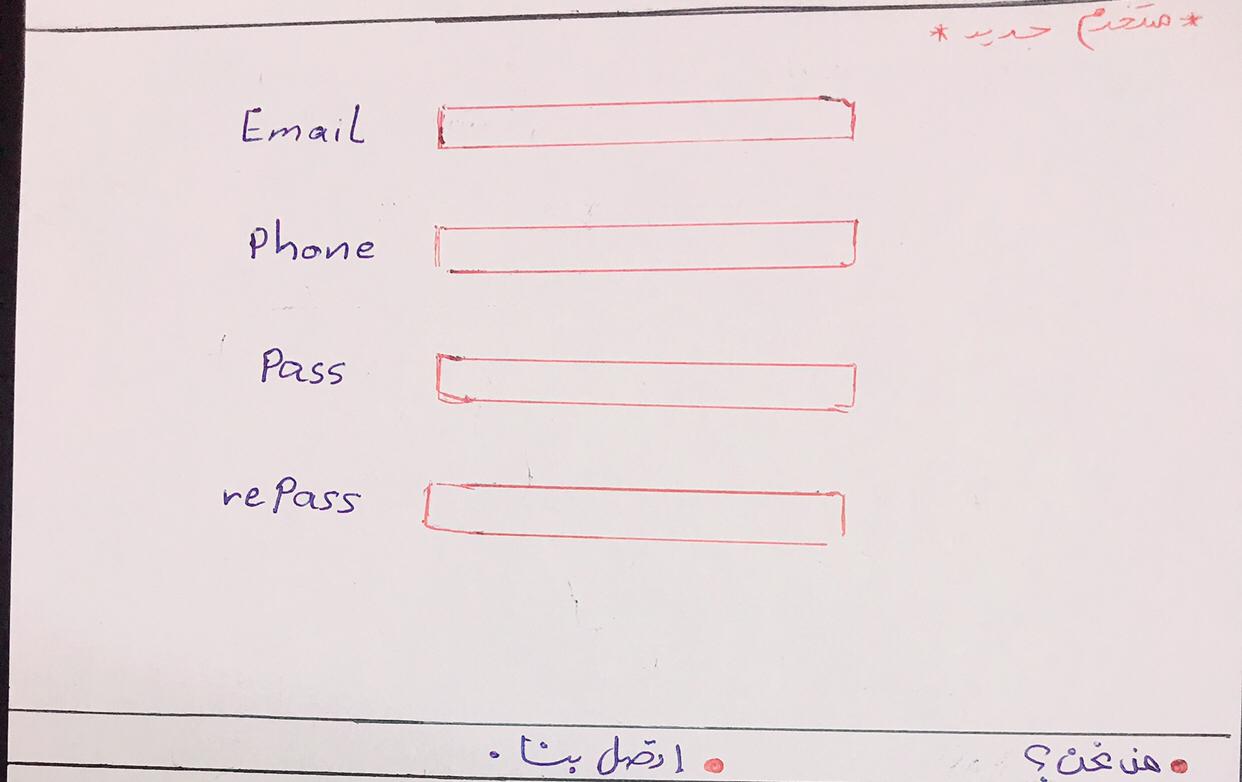 * مستخدم جديد *
Email
Phone
Pass
rePass
• من نحن؟
• اتصل بنا .